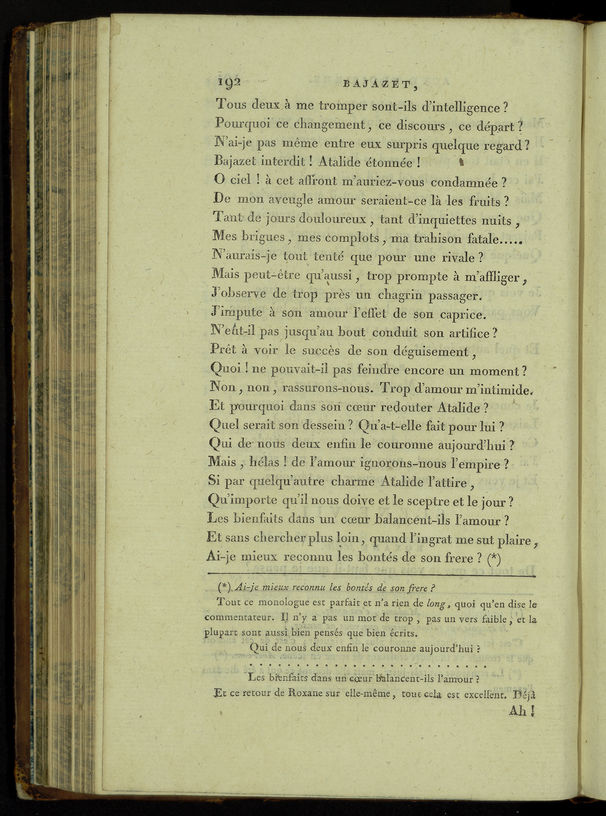 192 BAJAZET,
Tous deux à me tromper sont-ils d'intelligence ?
Pourquoi ce changement, ce discours, ce départ ?
N'ai-je pas même entre eux surpris quelque regard ?
Bajazet interdit ! Atalide étonnée !
O ciel ! à cet affront m'auriez-vous condamnée ?
De mon aveugle amour seraient-ce là les fruits ?
Tant de jours douloureux, tant d'inquiettes nuits,
Mes brigues, mes complots, ma trahison fatale.....
N'aurais-je tout tenté que pour une rivale ?
Mais peut-être qu'aussi, trop prompte à m'affliger,
J'observe de trop près un chagrin passager.
J'impute à son amour l'effet de son caprice.
N'eût-il pas jusqu'au bout conduit son artifice ?
Prêt à voir le succès de son déguisement,
Quoi ! ne pouvait-il pas feindre encore un moment ?
Non, non, rassurons-nous. Trop d'amour m'intimide.
Et pourquoi dans son cœur redouter Atalide ?
Quel serait son dessein ? Qu'a-t-elle fait pour lui ?
Qui de nous deux enfin le couronne aujourd'hui ?
Mais, hélas ! de l'amour ignorons-nous l'empire ?
Si par quelqu'autre charme Atalide l'attire,
Qu'importe qu'il nous doive et le sceptre et le jour ?
Les bienfaits dans un cœur balancent-ils l'amour ?
Et sans chercher plus loin, quand l'ingrat me sut plaire,
Ai-je mieux reconnu les bontés de son frere ? (*)
(*) Ai-je mieux reconnu les bontés de son frere ?
Tout ce monologue est parfait et n'a rien de long, quoi qu'en dise le
commentateur. Il n'y a pas un mot de trop, pas un vers faible, et la
plupart sont aussi bien pensés que bien écrits.
Qui de nous deux enfin le couronne aujourd'hui ?
. . . . . . . . . . . . . . . . . . . . . .
Les bienfaits dans un cœur balancent-ils l'amour ?
Et ce retour de Roxane sur elle-même, tout cela est excellent. Déjà
Ah !